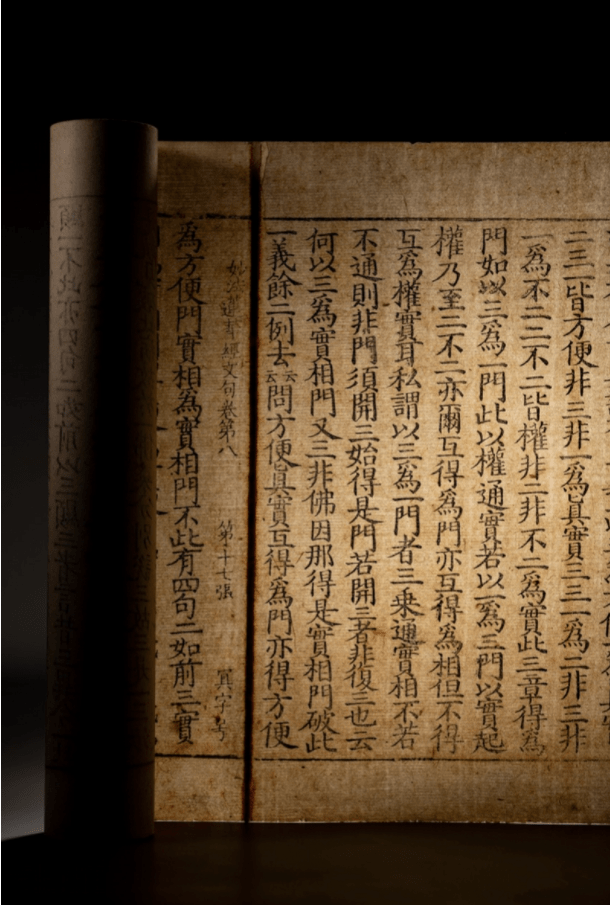 二三一皆方便非三非一爲眞實三三一爲二非三非
一爲不二二不二皆權非二非不二爲實此三章得爲
門如以三爲一門此以權通實若以一爲三門以實起
權乃至二不二亦爾互得爲門亦互得爲相但不得
互爲權實耳私謂以三爲一門者三乘通實相不若
不通則非門須開三始得是門若開三者非復三也云
何以三爲實相門又三非佛因那得是實相門破此
一義餘二例去云云問方便眞實互得爲門亦得方便
妙法蓮華經文句卷第八 第十七張 字号
爲方便門實相爲實相門不此有四句二如前三實
顯一不此亦四句二如前以三顯三者昔